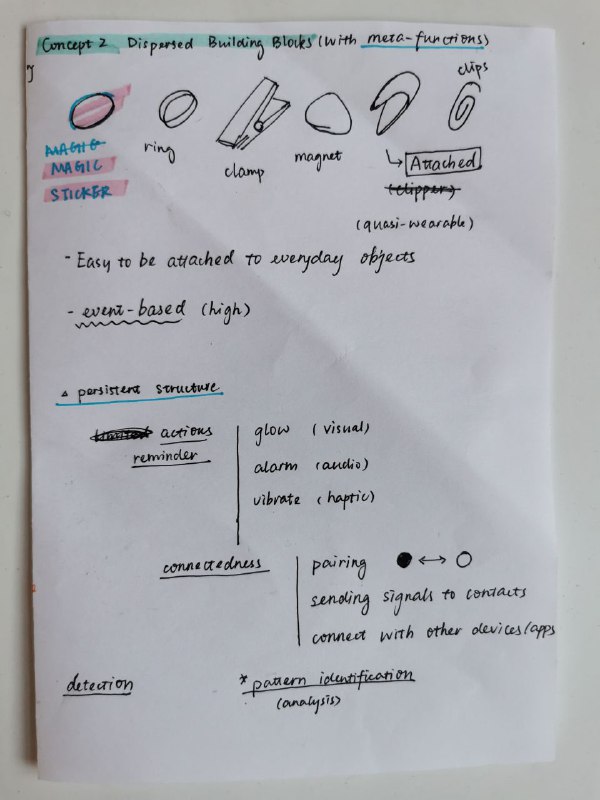 Concept 2 Dispersed Building Blocks (with meta-functions)
clips
MAGIC
MAGIC
STICKER
ring
clamp
magnet
Attached
(clipper)
(quasi-wearable)
- Easy to be attached to everyday objects
- event-based (high)
△ persistent structure
actions
reminder
glow (visual)
alarm (audio)
vibrate (haptic)
connectedness
pairing ● ↔ ○
sending signals to contacts
connect with other devices/apps
detection
* pattern identification
(analysis)